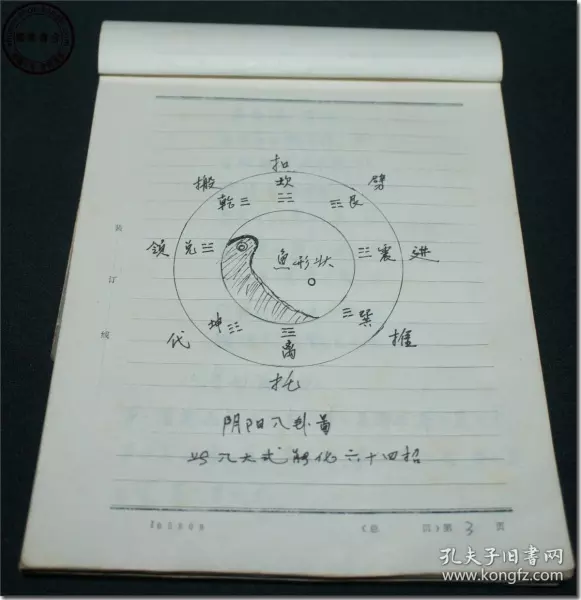 扣
搬 坎 劈
乾 ☰ ☵ ☶ 艮
领 兑 ☱ ☳ 震 进
鱼形状
代 坤 ☷ ☴ 巽 推
☲
离
托
阴阳八卦
以八大式能化六十四招
装
订
线
第 3 页
孔夫子旧书网
www.kongfz.com